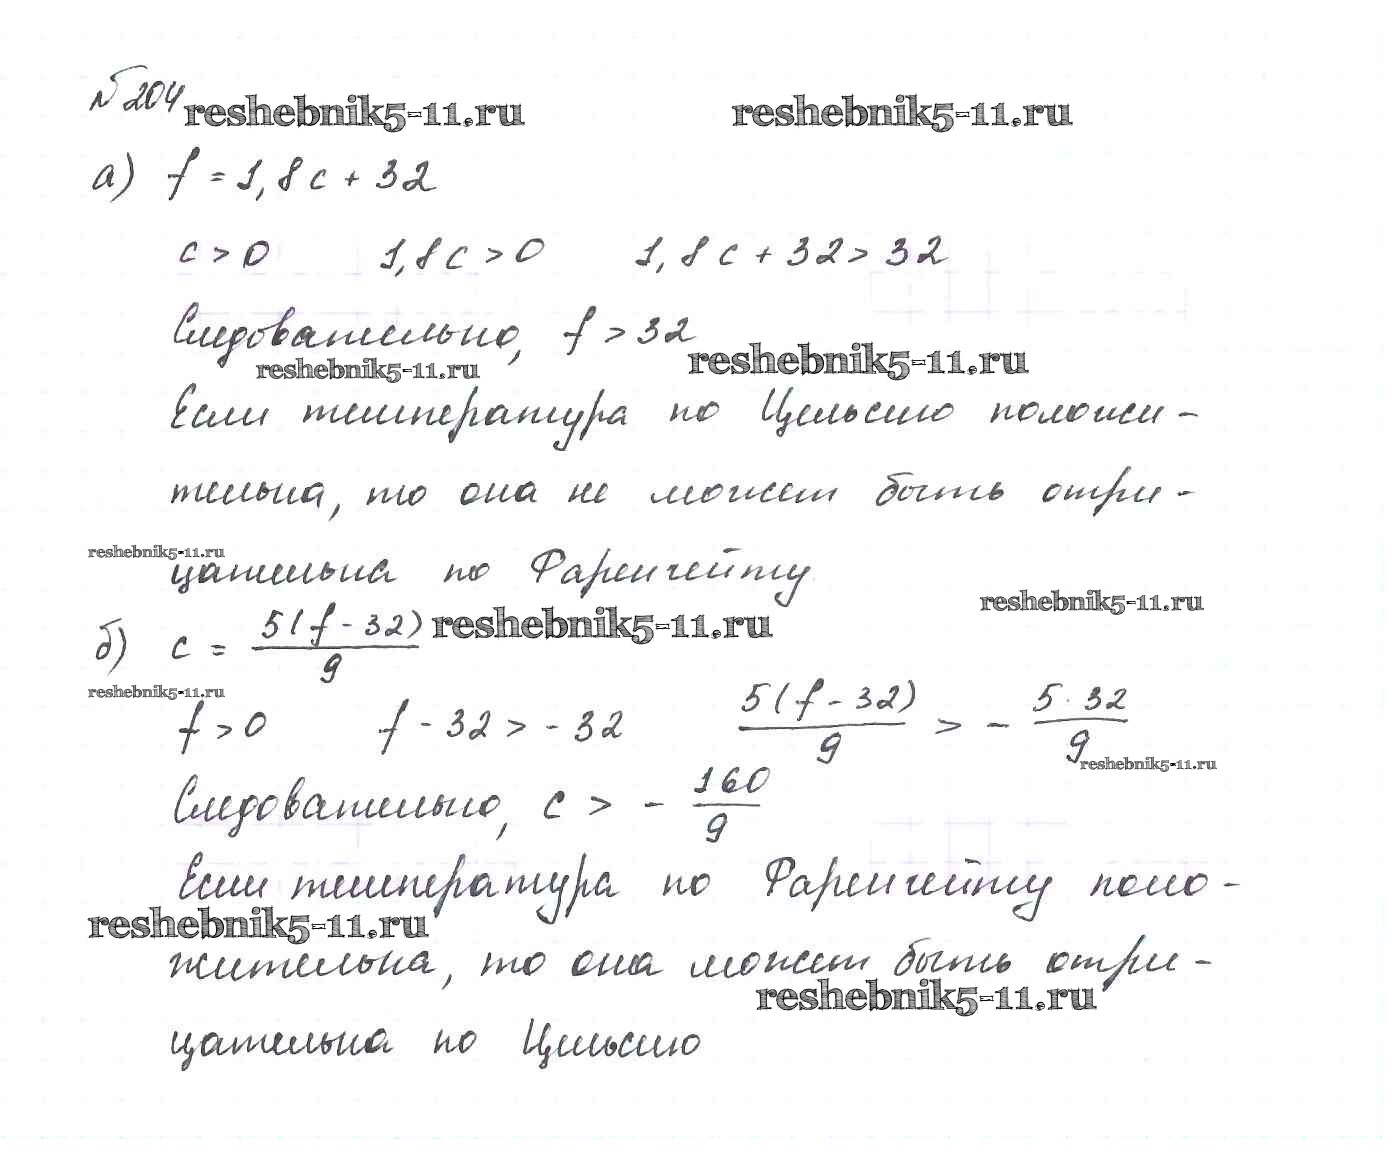 №204 reshebnik5-11.ru reshebnik5-11.ru
а) f = 1,8c + 32
c > 0 1,8c > 0 1,8c + 32 > 32
Следовательно, f > 32
reshebnik5-11.ru reshebnik5-11.ru
Если температура по Цельсию положи-
тельна, то она не может быть отри-
reshebnik5-11.ru
цательна по Фаренгейту
reshebnik5-11.ru
б) c = 5(f - 32)/9 reshebnik5-11.ru
reshebnik5-11.ru
f > 0 f - 32 > - 32 5(f - 32)/9 > - 5·32/9
reshebnik5-11.ru
Следовательно, c > - 160/9
Если температура по Фаренгейту поло-
reshebnik5-11.ru
жительна, то она может быть отри-
reshebnik5-11.ru
цательна по Цельсию